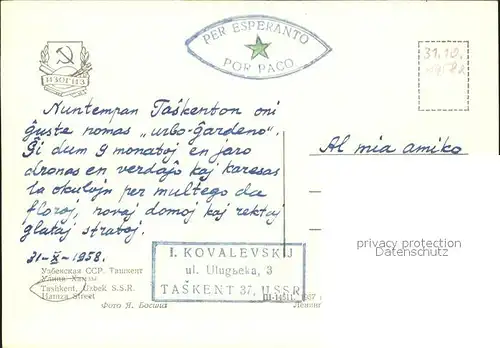 PER ESPERANTO
POR PACO
ИЗОГИЗ
31.10.
Nuntempan Taŝkenton oni
ĝuste nomas „urbo-ĝardeno".
Ĝi dum 9 monatoj en jaro
dronas en verdaĵo kaj karesas
la okulojn per multego da
floroj, novaj domoj kaj rektaj
glataj stratoj.
31-X-1958.
Al mia amiko
privacy protection
oldthing.de
I. KOVALEVSKIJ
ul. Uluġbeka, 3
TAŜKENT 37, U.S.S.R
Узбекская ССР. Ташкент
Улица Хамзы
Tashkent, Uzbek S.S.R.
Hamza Street
Фото Я. Босина